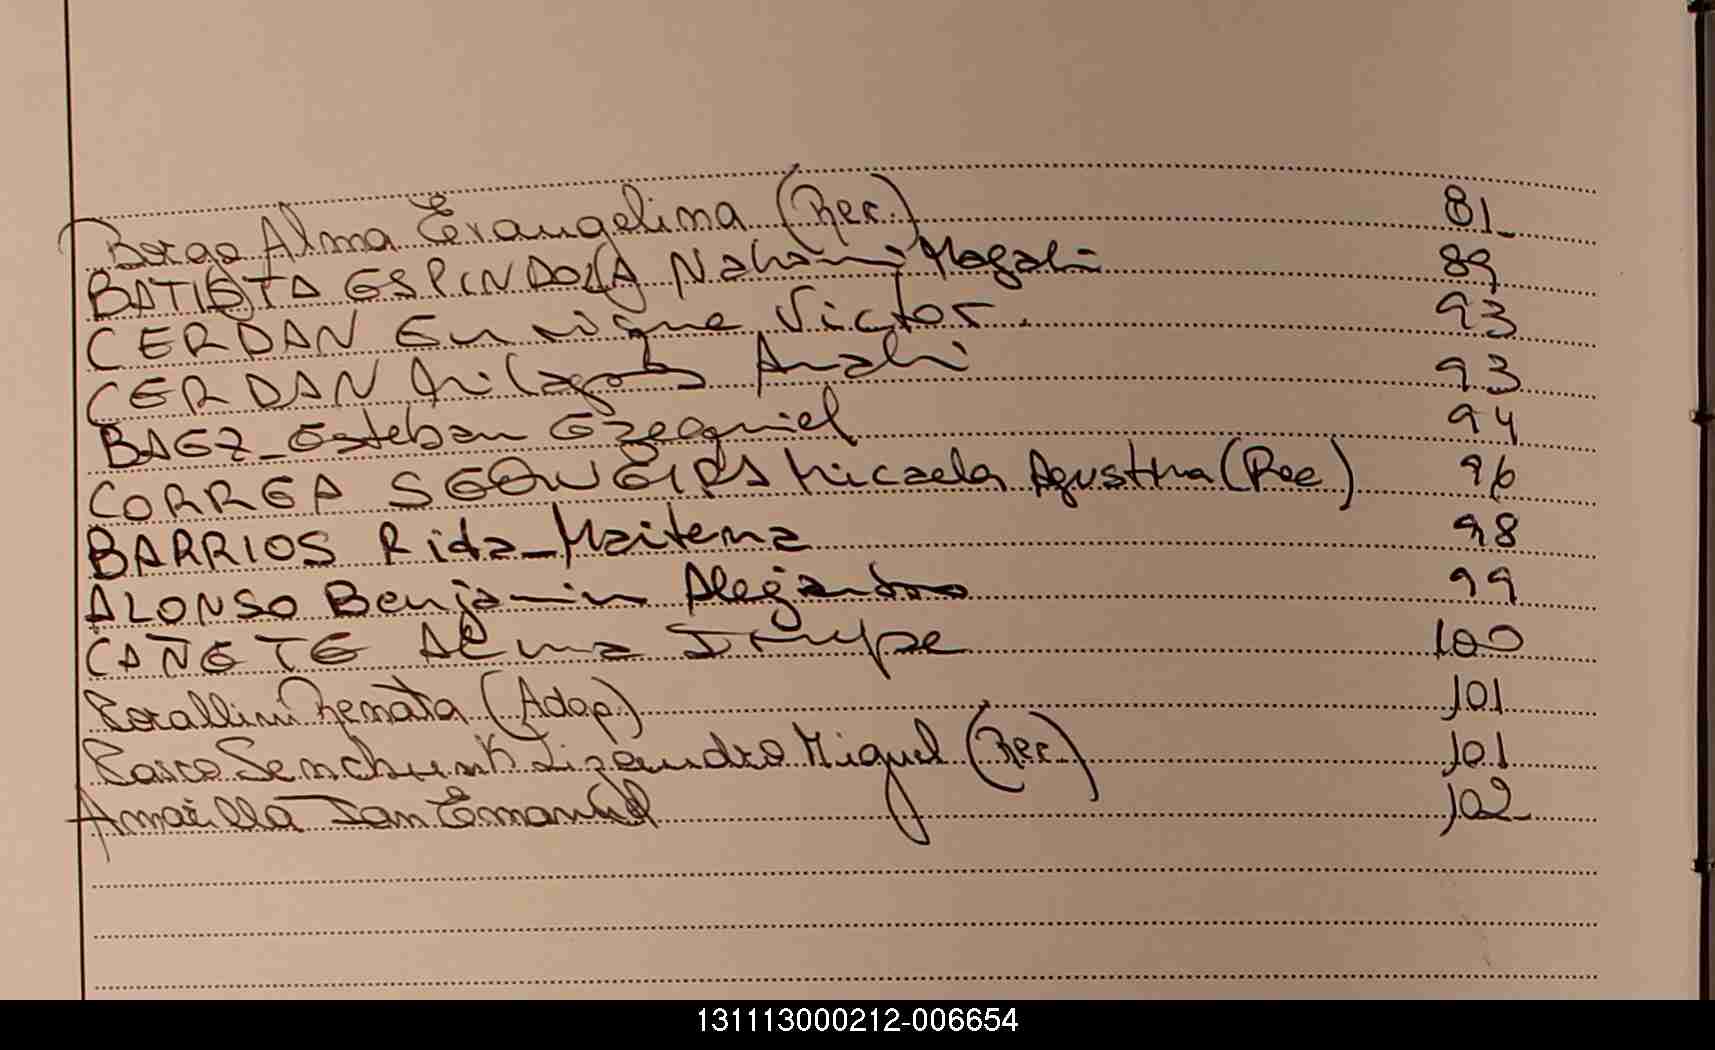 Borgo Alma Evangelina (Rec.) 81
BATISTA ESPINDOLA Nahomi Magali 89
CERDAN Enrique Victor. 93
CERDAN Milagros Anahi 93
BAEZ Esteban Ezequiel 94
CORREA Micaela Agustina (Rec) 96
BARRIOS Rida Maitena 98
ALONSO Benjamin Alejandro 99
CAÑETE Alma Irupe 100
Corallini Renata (Adop.) 101
Lizandro Miguel (Rec.) 101
Amarilla Ian Emanuel 102
131113000212-006654